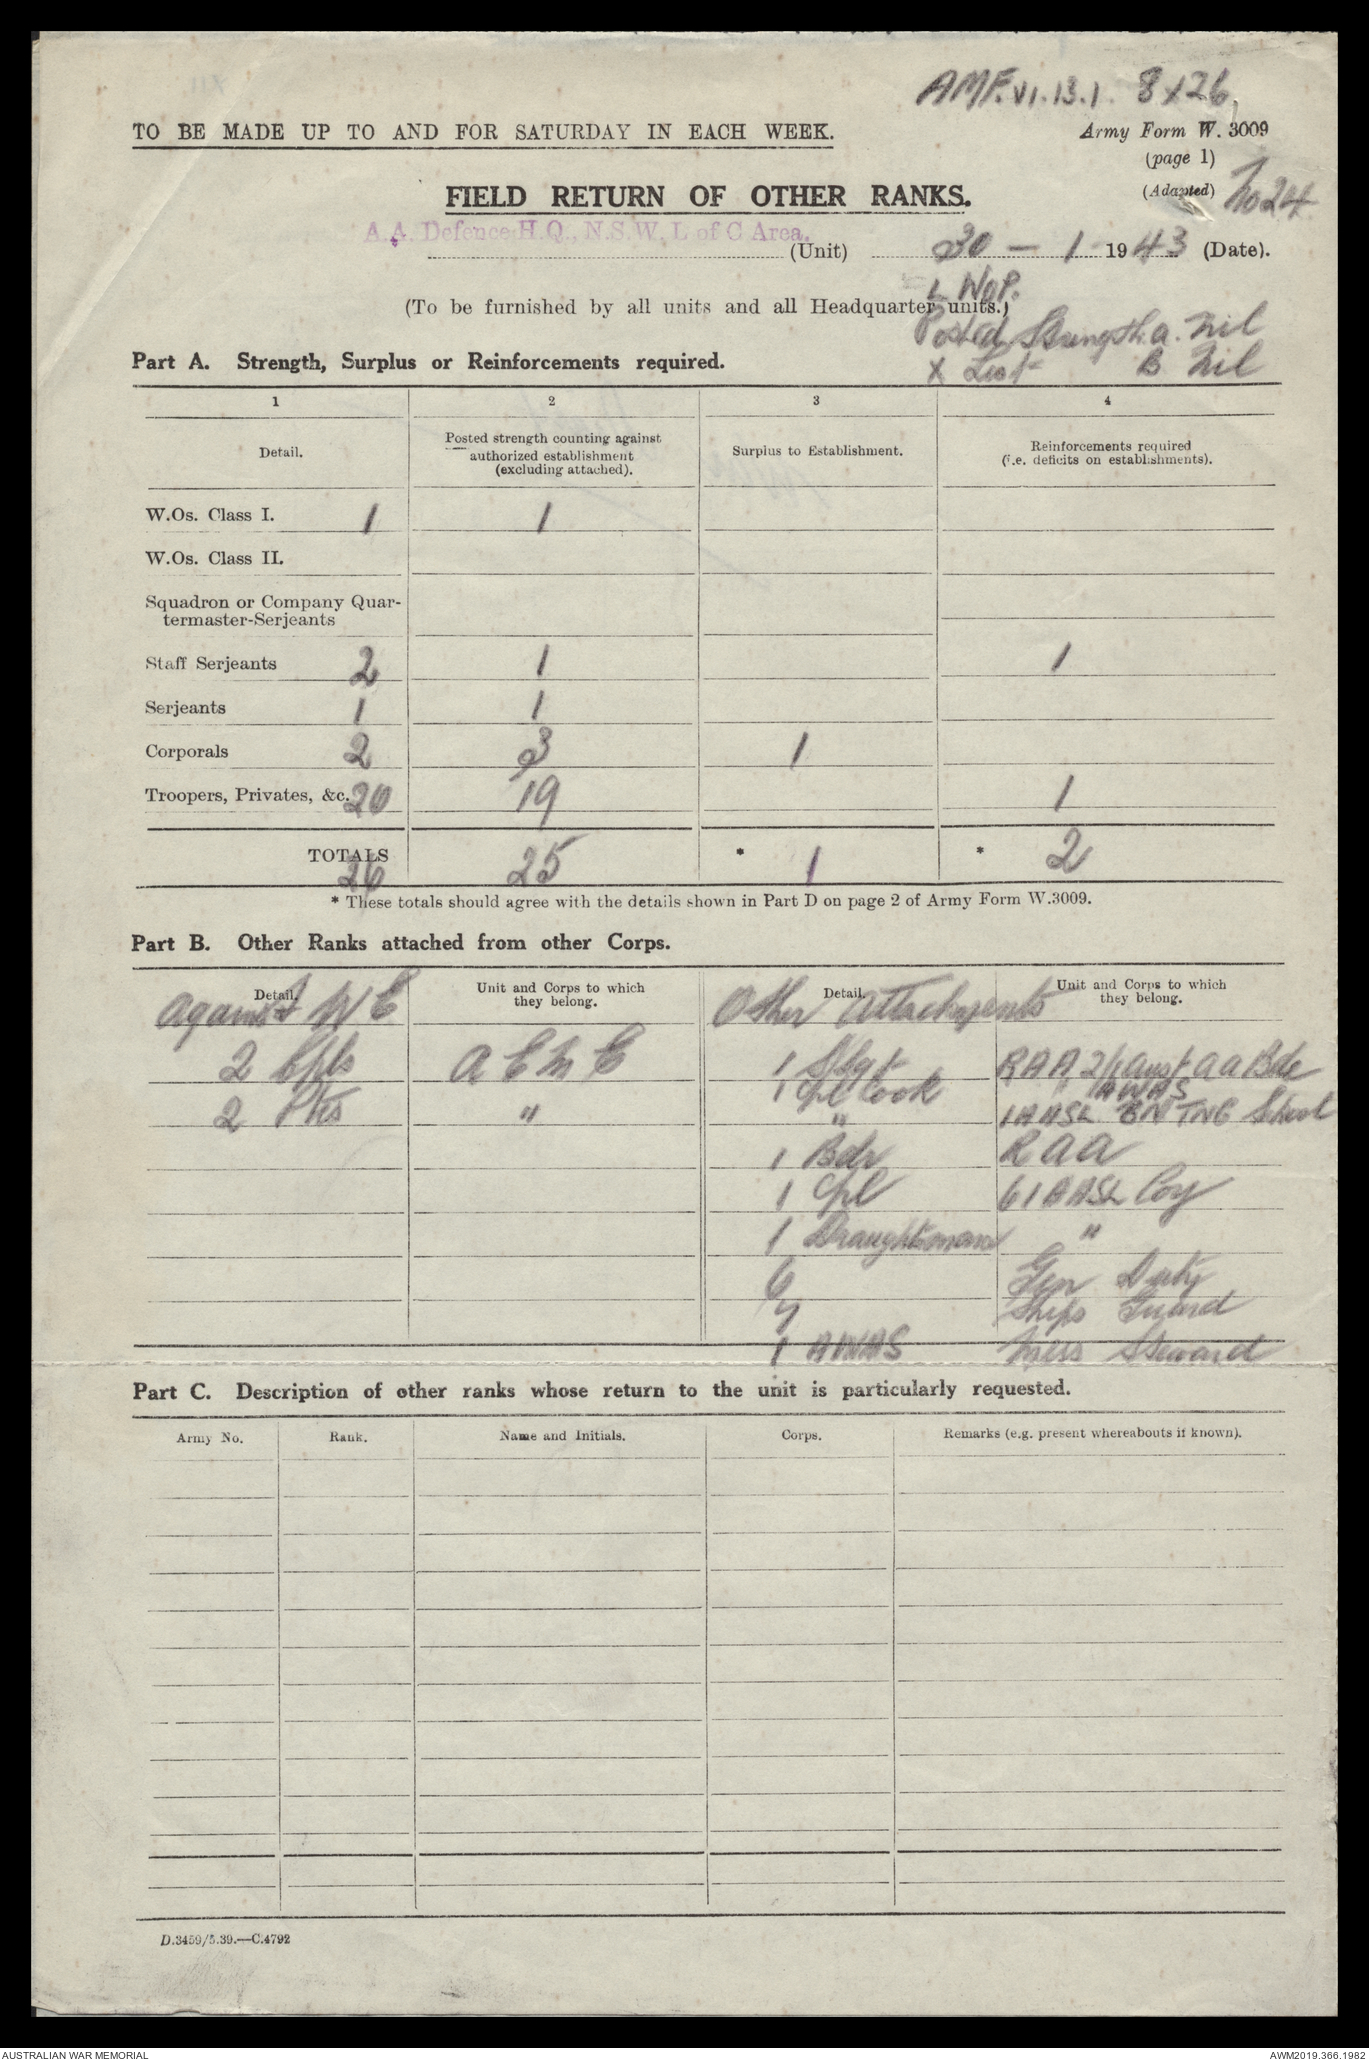 AMF. VI. 13. 1. 8 x 26
TO BE MADE UP TO AND FOR SATURDAY IN EACH WEEK.
Army Form W. 3009
(page 1)
(Adapted)
No 24
FIELD RETURN OF OTHER RANKS.
A.A. Defence H.Q., N.S.W. L of C Area.
(Unit) 30 - 1 1943 (Date).
(To be furnished by all units and all Headquarter units.)
Posted Strength. a. Nil
X List B Nil
Part A. Strength, Surplus or Reinforcements required.
1 2 3 4
Detail. Posted strength counting against authorized establishment (excluding attached). Surplus to Establishment. Reinforcements required (i.e. deficits on establishments).
W.Os. Class I. 1 1
W.Os. Class II.
Squadron or Company Quar-
termaster-Serjeants
Staff Serjeants 2 1 1
Serjeants 1 1
Corporals 2 3 1
Troopers, Privates, &c. 20 19 1
TOTALS 26 25 * 1 * 2
* These totals should agree with the details shown in Part D on page 2 of Army Form W.3009.
Part B. Other Ranks attached from other Corps.
Detail. Unit and Corps to which they belong. Detail. Unit and Corps to which they belong.
Against WE Other Attachments
2 Cpls 1 S/Sgt RAA 2/1 Aust AA Bde
1 Cpl Cook " AWAS
2 Ptes " " 1 AASL BN TNG School
1 Bdr RAA
1 Cpl 61 AASL Coy
1 Draughtsman "
6 Gen Duty
7 Ships Guard
1 AWAS Mess Steward
Part C. Description of other ranks whose return to the unit is particularly requested.
Army No. Rank. Name and Initials. Corps. Remarks (e.g. present whereabouts if known).
D.3459/5.39.—C.4792
AUSTRALIAN WAR MEMORIAL
AWM2019.366.1982